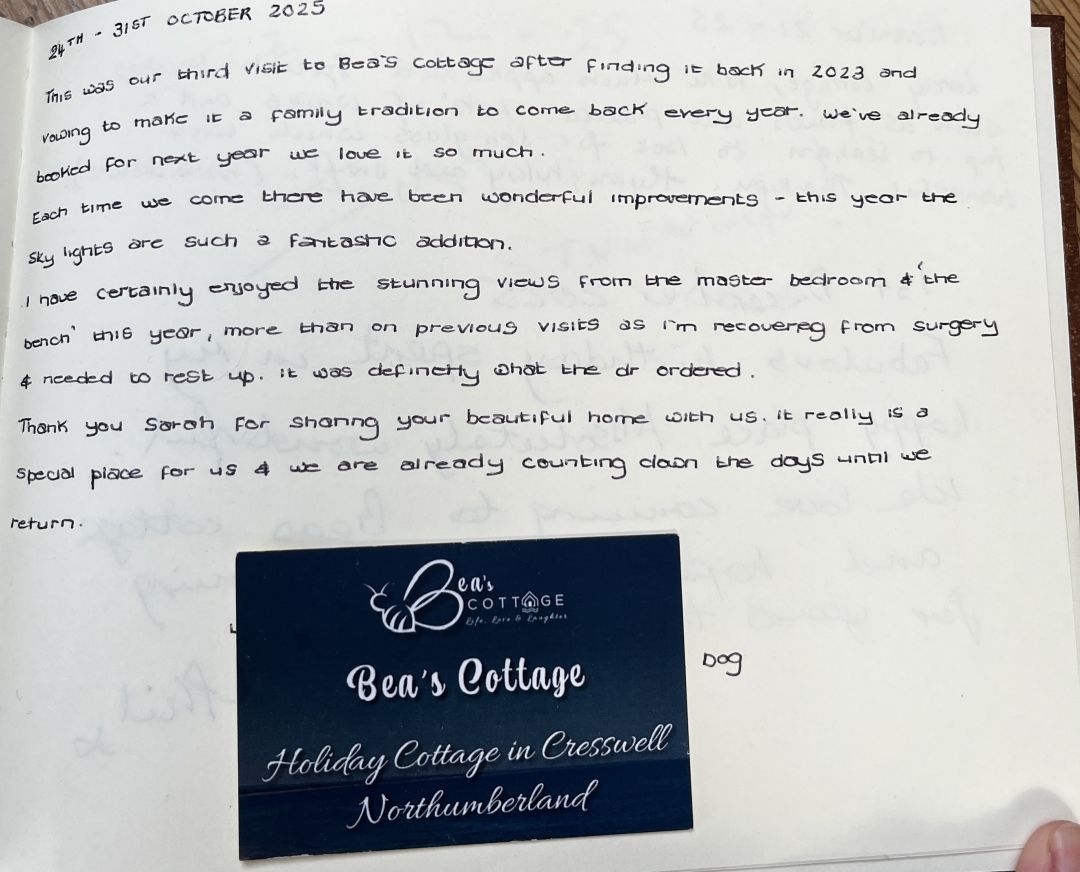 24TH - 31ST OCTOBER 2025
This was our third visit to Bea's Cottage after finding it back in 2023 and
vowing to make it a family tradition to come back every year. we've already
booked for next year we love it so much.
Each time we come there have been wonderful improvements - this year the
sky lights are such a fantastic addition.
I have certainly enjoyed the stunning views from the master bedroom & 'the
bench' this year, more than on previous visits as i'm recovereg from surgery
& needed to rest up. it was definetly what the dr ordered.
Thank you Sarah for sharing your beautiful home with us. it really is a
special place for us & we are already counting down the days until we
return.
Bea's
COTTAGE
Life, Love & Laughter
Bea's Cottage
Dog
Holiday Cottage in Cresswell
Northumberland